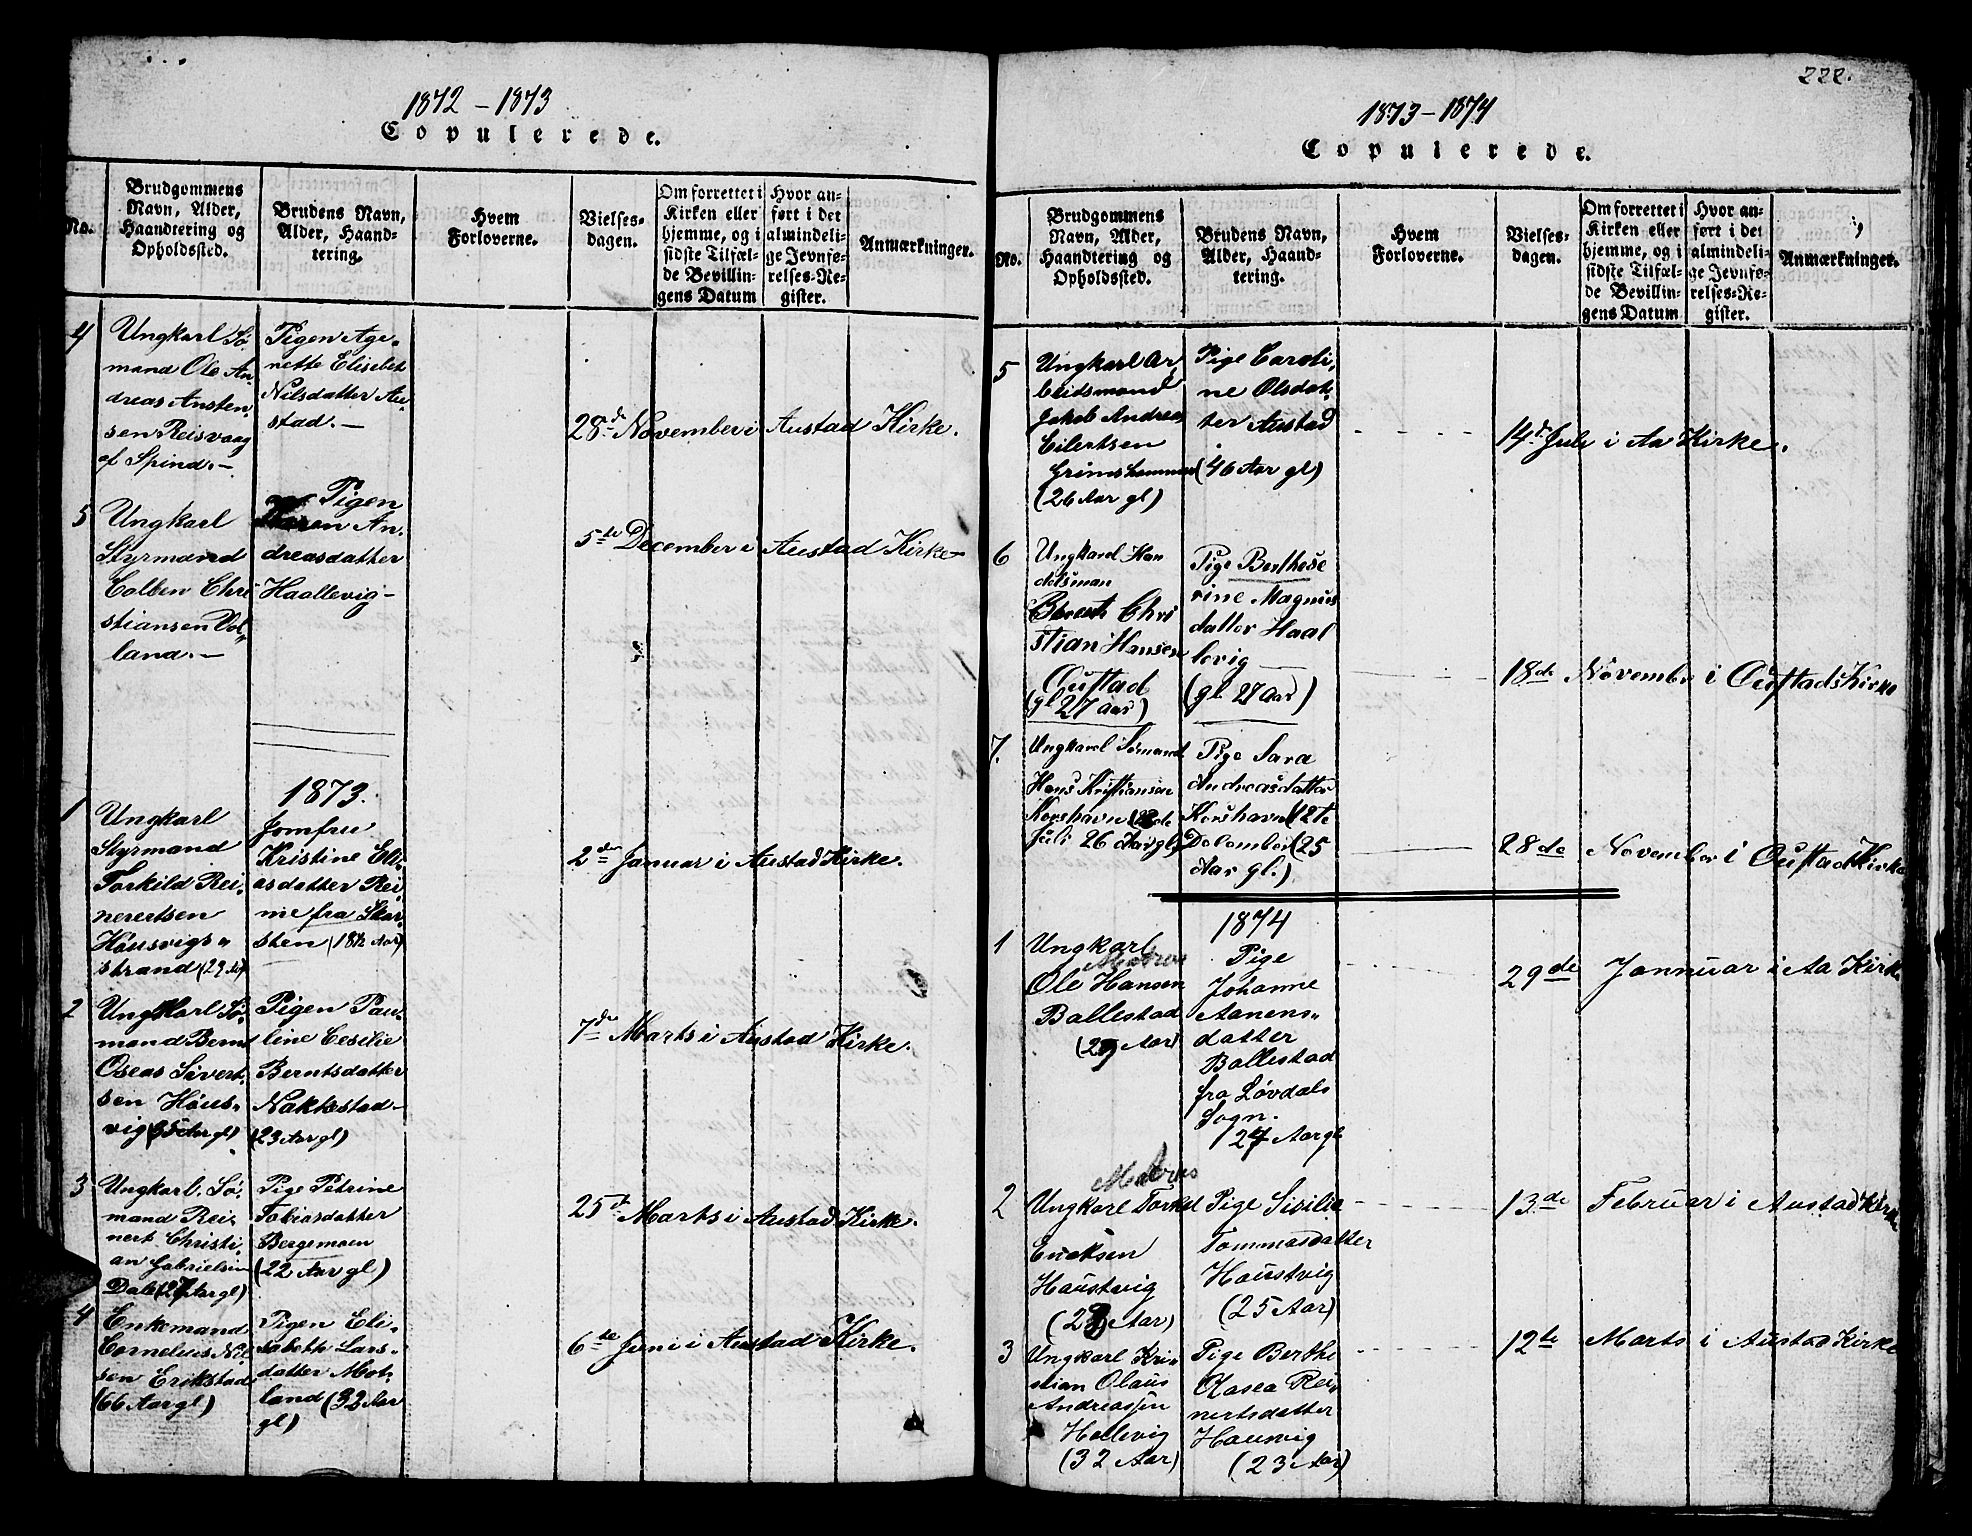 1872 - 1873
Copulerede.
No.
Brudgommens
Navn, Alder,
Haandtering og
Opholdssted.
Brudens Navn,
Alder, Haand-
tering.
Hvem
Forloverne.
Vielses-
dagen.
Om forrettet i
Kirken eller
hjemme, og i
sidste Tilfæl-
de Bevillin-
gens Datum
Hvor an-
ført i det
almindeli-
ge Jevnfø-
relses-Re-
gister.
Anmærkninger.
4
Ungkarl Sø-
mand Ole An-
dreas Austen-
sen Reisvaag
af Spind.-
Pigen Age-
nette Elisebet
Nilsdatter Au-
stad.-
28de November i Austad Kirke.
5
Ungkarl
Styrmand
Colben Chri
stiansen Dol-
land.-
Pigen
Karen An-
dreasdatter
Haallevig-
5te December i Austad Kirke-
1873.
1
Ungkarl
Styrmand
Torkild Rei-
nerertsen
Hausvigs-
strand (29 Aar)
Jomfru
Kristine Eli-
asdatter Rei-
me fra Skar-
sten (18½ Aar)
2den Januar i Austad Kirke.
2
Ungkarl Sø-
mand Bernt
Oseas Sivert-
sen Haus-
vig (25 Aar gl)
Pigen Pau-
line Cesilie
Berntsdatter
Nakkestad-
(23 Aar gl)
7de Marts i Austad Kirke.
3
Ungkarl. Sø-
mand Rei-
nert Christi-
an Gabrielsen
Dale (27 Aar gl)
Pige Petrine
Tobiasdatter
Bergemoen
(22 Aar gl)
25de Marts i Austad Kirke.
4
Enkemand
Cornelius Nil-
sen Erikstad
(66 Aar gl)
Pigen Eli-
sabeth Lars-
datter Mot-
land (32 Aar
gl)
6te Juni i Austad Kirke.
222.
1873 - 1874
Copulerede.
No.
Brudgommens
Navn, Alder,
Haandtering og
Opholdssted.
Brudens Navn,
Alder, Haand-
tering.
Hvem
Forloverne.
Vielses-
dagen.
Om forrettet i
Kirken eller
hjemme, og i
sidste Tilfæl-
de Bevillin-
gens Datum
Hvor an-
ført i det
almindeli-
ge Jevnfø-
relses-Re-
gister.
Anmærkninger.
5
Ungkarl Ar-
beidsmand
Jakob Andreas
Eilertsen
(26 Aar gl)
Pige Caroli-
ne Olsdat-
ter Austad
(46 Aar gl)
14de Juli i Aa Kirke.
6
Ungkarl Han
delsman
Berent Chri
stian Hansen
Oustad
(gl 27 Aar)
Pige Berthese
rine Magnus
datter Haal
levig
(gl 27 Aar)
18de November i Oustads Kirke
7.
Ungkarl Sømand
Hans Kristiansen
Korshavn
Juli 26 Aar gl)
Pige Sara
Andreasdatter
Korshavn (12te
Desember (25
Aar gl.)
28de November i Oustad Kirke
1874
1
Ungkarl
Matros
Ole Hansen
Ballestad
(29 Aar)
Pige
Johanne
Aanens-
datter
Ballestad
fra Løvdals
Sogn.
(27 Aar gl
29de Jannuar i Aa Kirke
2
Matros
Ungkarl Torkel
Ericksen
Haustvig
(28 Aar)
Pige Sisilie
Tommasdatter
Haustvig
(25 Aar)
13de Februar i Austad Kirke
3
Ungkarl Kri-
stian Olaus
Andreassen
Hollevig
(32 Aar)
Pige Berthe
Olasea Rei-
nertsdatter
Hausvig
(23 Aar)
12te Marts i Austad Kirke